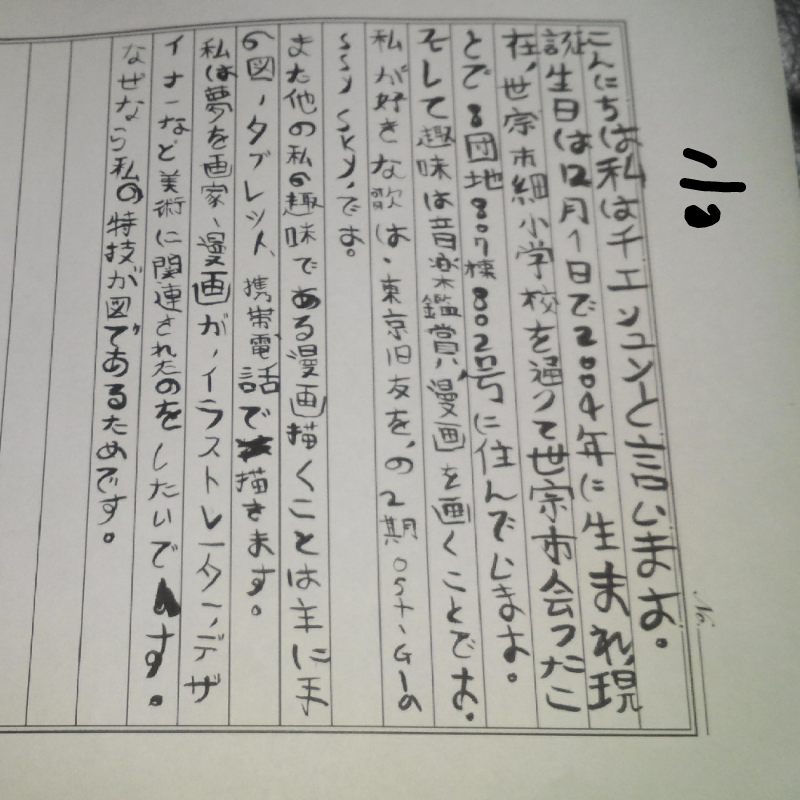 No.
こんにちは私はチエンユンと言います。
誕生日は12月1日で2004年に生まれ、現
在、世宗市細小学校を通って世宗市会ったこ
とで8団地807棟802号に住んでいます。
そして趣味は音楽鑑賞、漫画を画くことです。
私が好きな歌は、東京旧友を、の2期OSナーGIの
SSY SKY、です。
また他の私の趣味である漫画描くことは主に手
の図、タブレット、携帯電話で描きます。
私は夢を画家、漫画が、イラストレーター、デザ
イナーなど美術に関連されたのをしたいです。
なぜなら私の特技が図であるためです。